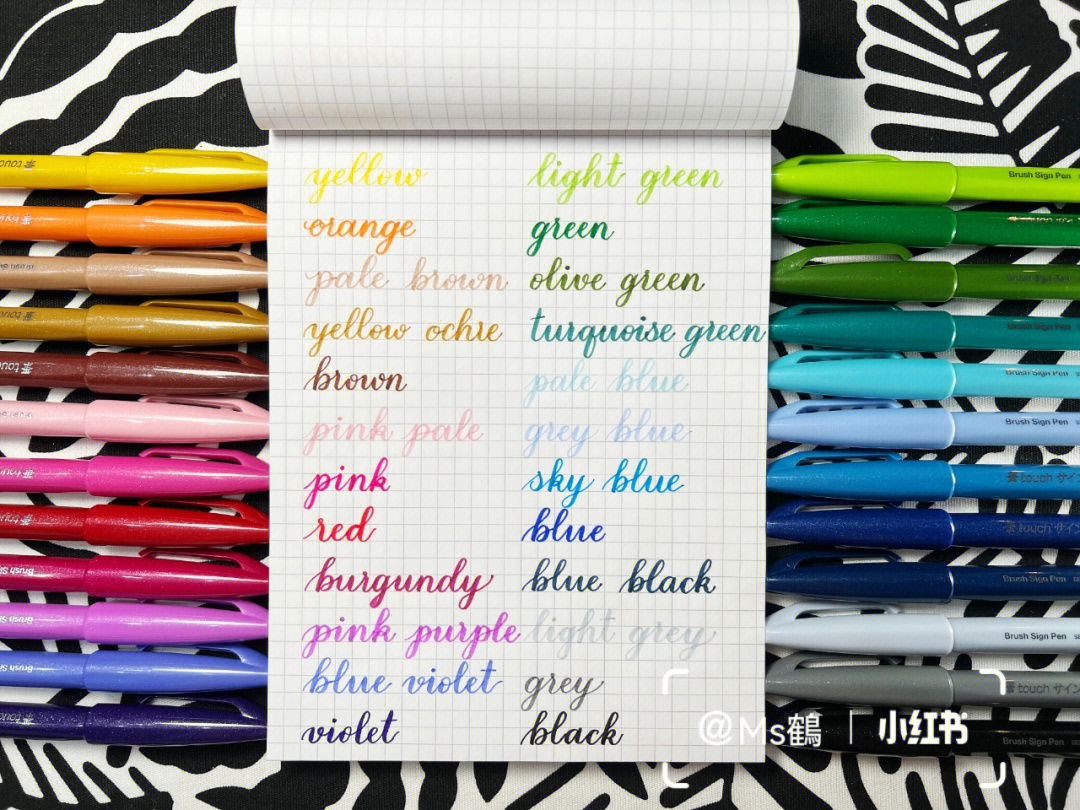 yellow
orange
pale brown
yellow ochre
brown
pink pale
pink
red
burgundy
pink purple
blue violet
violet
light green
green
olive green
turquoise green
pale blue
grey blue
sky blue
blue
blue black
light grey
grey
black
Brush Sign Pen
Brush Sign Pen
Brush Sign Pen
Brush Sign Pen
touch サイン
touch サイン
Brush Sign Pen
Brush Sign Pen
touch サイン
Brush Sign Pen
@Ms鶴 | 小红书